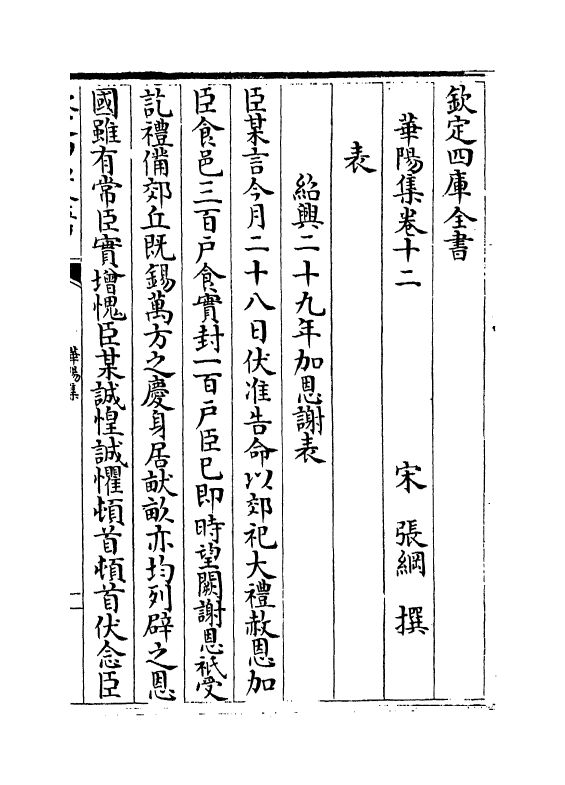 欽定四庫全書
華陽集卷十二
宋 張綱 撰
表
紹興二十九年加恩謝表
臣某言今月二十八日伏准告命以郊祀大禮赦恩加
臣食邑三百戶食實封一百戶臣已即時望闕謝恩祗受
訖禮備郊丘既錫萬方之慶身居畎畝亦均列辟之恩
國雖有常臣實增愧臣某誠惶誠懼頓首頓首伏念臣
華陽集
一